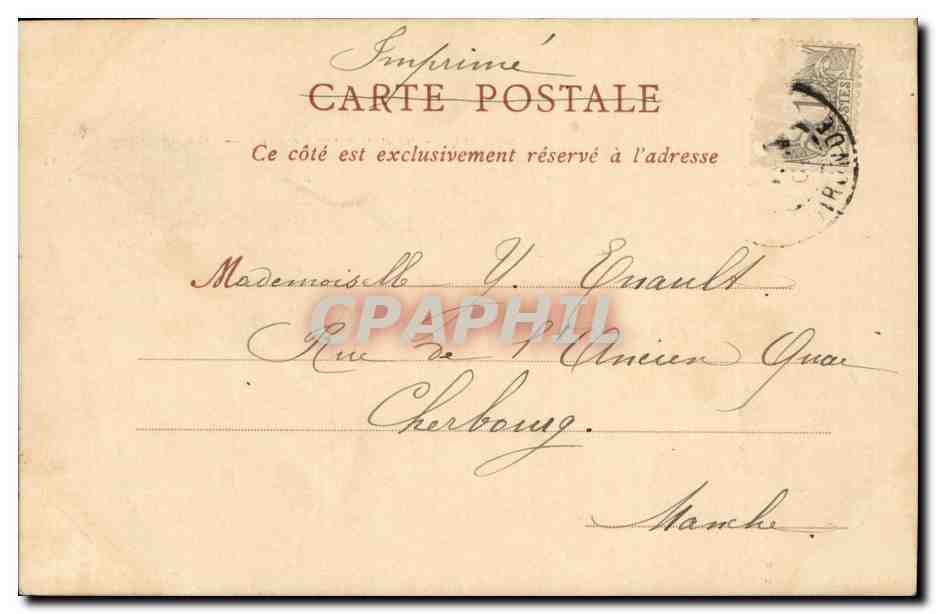 Imprimé
CARTE POSTALE
Ce côté est exclusivement réservé à l'adresse
POSTES
GIRONDE
Mademoiselle Y. Enault.
CPAPHIL
Rue de l'Ancien Quai
Cherbourg.
Manche